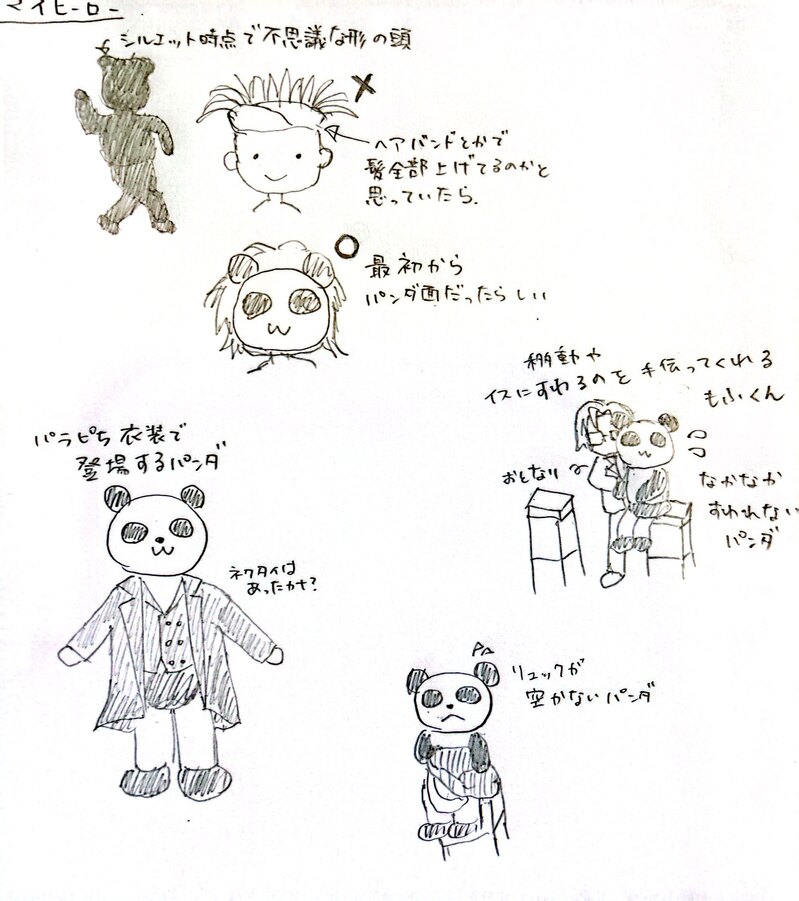 マイヒーロー
シルエット時点で不思議な形の頭
ヘアバンドとかで
髪全部上げてるのかと
思っていたら.
最初から
パンダ面だったらしい
移動や
イスにすわるのを手伝ってくれる
もふくん
おとなり
なかなか
すわれない
パンダ
パラピち衣装で
登場するパンダ
ネクタイは
あったカナ?
リュックが
空かないパンダ